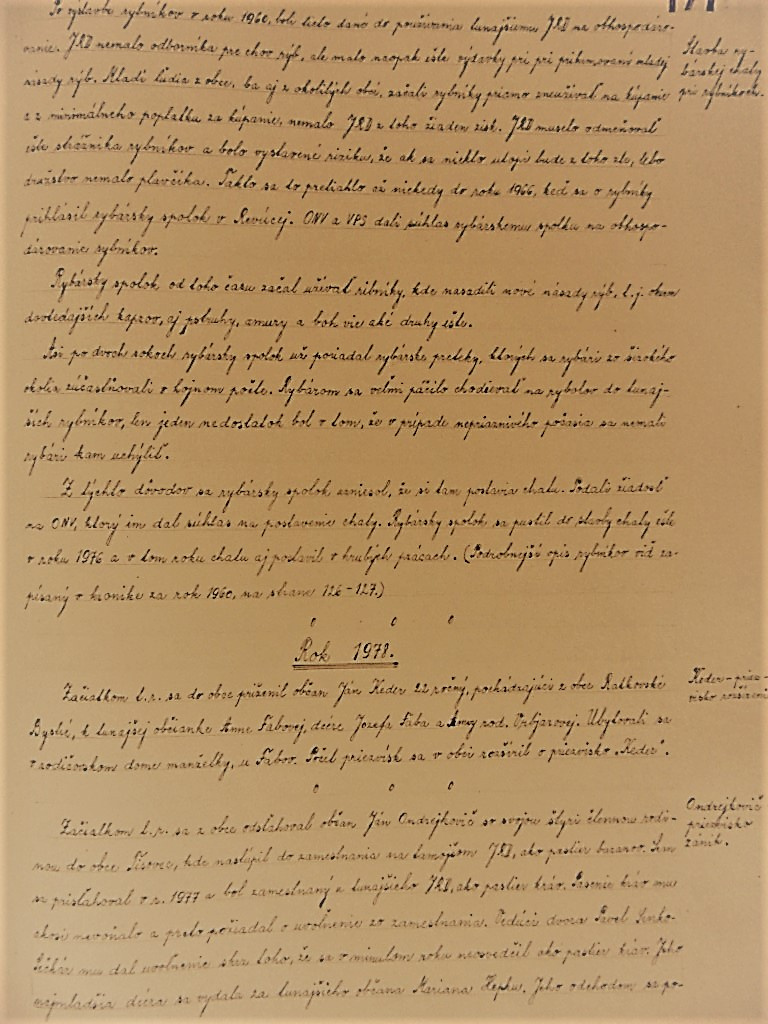 Po výstavbe rybníkov v roku 1960, boli tieto dané do používania tunajšiemu JRD na obhospodáro-
vanie. JRD nemalo odborníka pre chov rýb, ale malo naopak ešte výdavky pri pri prikrmovaní mladej
násady rýb. Mladí ľudia z obce, ba aj z okolitých obcí, začali rybníky priamo zneužívať na kúpanie
a z minimálneho poplatku za kúpanie, nemalo JRD z toho žiaden zisk. JRD muselo odmeňovať
ešte strážnika rybníkov a bolo vystavené riziku, že ak sa niekto utopí bude z toho zle, lebo
družstvo nemalo plavčíka. Takto sa to pretiahlo až niekedy do roku 1966, keď sa o rybníky
prihlásil rybársky spolok v Revúcej. ONV a VPS dali súhlas rybárskemu spolku na obhospo-
dárovanie rybníkov.
Rybársky spolok od toho času začal užívať ribníky, kde nasadili nové násady rýb, t.j. okrem
dovtedajších kaprov, aj pstruhy, amury a boh vie aké druhy ešte.
Asi po dvoch rokoch rybársky spolok už poriadal rybárske preteky, ktorých sa rybári zo širokého
okolia zúčastňovali v hojnom počte. Rybárom sa veľmi páčilo chodievať na rybolov do tunaj-
ších rybníkov, len jeden nedostatok bol v tom, že v prípade nepriaznivého počasia sa nemali
rybári kam uchýliť.
Z týchto dôvodov sa rybársky spolok uzniesol, že si tam postavia chatu. Podali žiadosť
na ONV, ktorý im dal súhlas na postavenie chaty. Rybársky spolok sa pustil do stavby chaty ešte
v roku 1976 a v tom roku chatu aj postavil v hrubých prácach. (Podrobnejší opis rybníkov viď za-
písaný v kronike za rok 1960, na strane 126-127.)
Stavba ry-
bárskej chaty
pri rybníkoch.
Rok 1978.
Začiatkom t.r. sa do obce priženil občan Ján Keder 22 ročný, pochádzajúci z obce Ratkovské
Bystré, k tunajšej občianke Anne Fábovej, dcére Jozefa Fába a Anny rod. Ubytovali sa
v rodičovskom dome manželky, u Fábov. Počet priezvísk sa v obci rozšíril o priezvisko "Keder".
Keder - priez-
visko rozšírené
Začiatkom t.r. sa z obce odsťahoval občan Ján Ondrejkovič so svojou štyri člennou rodi-
nou do obce Tisovec, kde nastúpil do zamestnania na tamojšom JRD, ako pastier baranov. Sem
sa prisťahoval v r. 1977 a bol zamestnaný u tunajšieho JRD, ako pastier kráv. Pasenie kráv mu
akosi nevoňalo a preto požiadal o uvoľnenie zo zamestnania. Vedúci dvora Pavel
mu dal uvoľnenie skrz toho, že sa v minulom roku neosvedčil ako pastier kráv. Jeho
najmladšia dcéra sa vydala za tunajšieho občana Mariana Hepku. Jeho odchodom sa po-
Ondrejkovič
priezvisko
zánik.